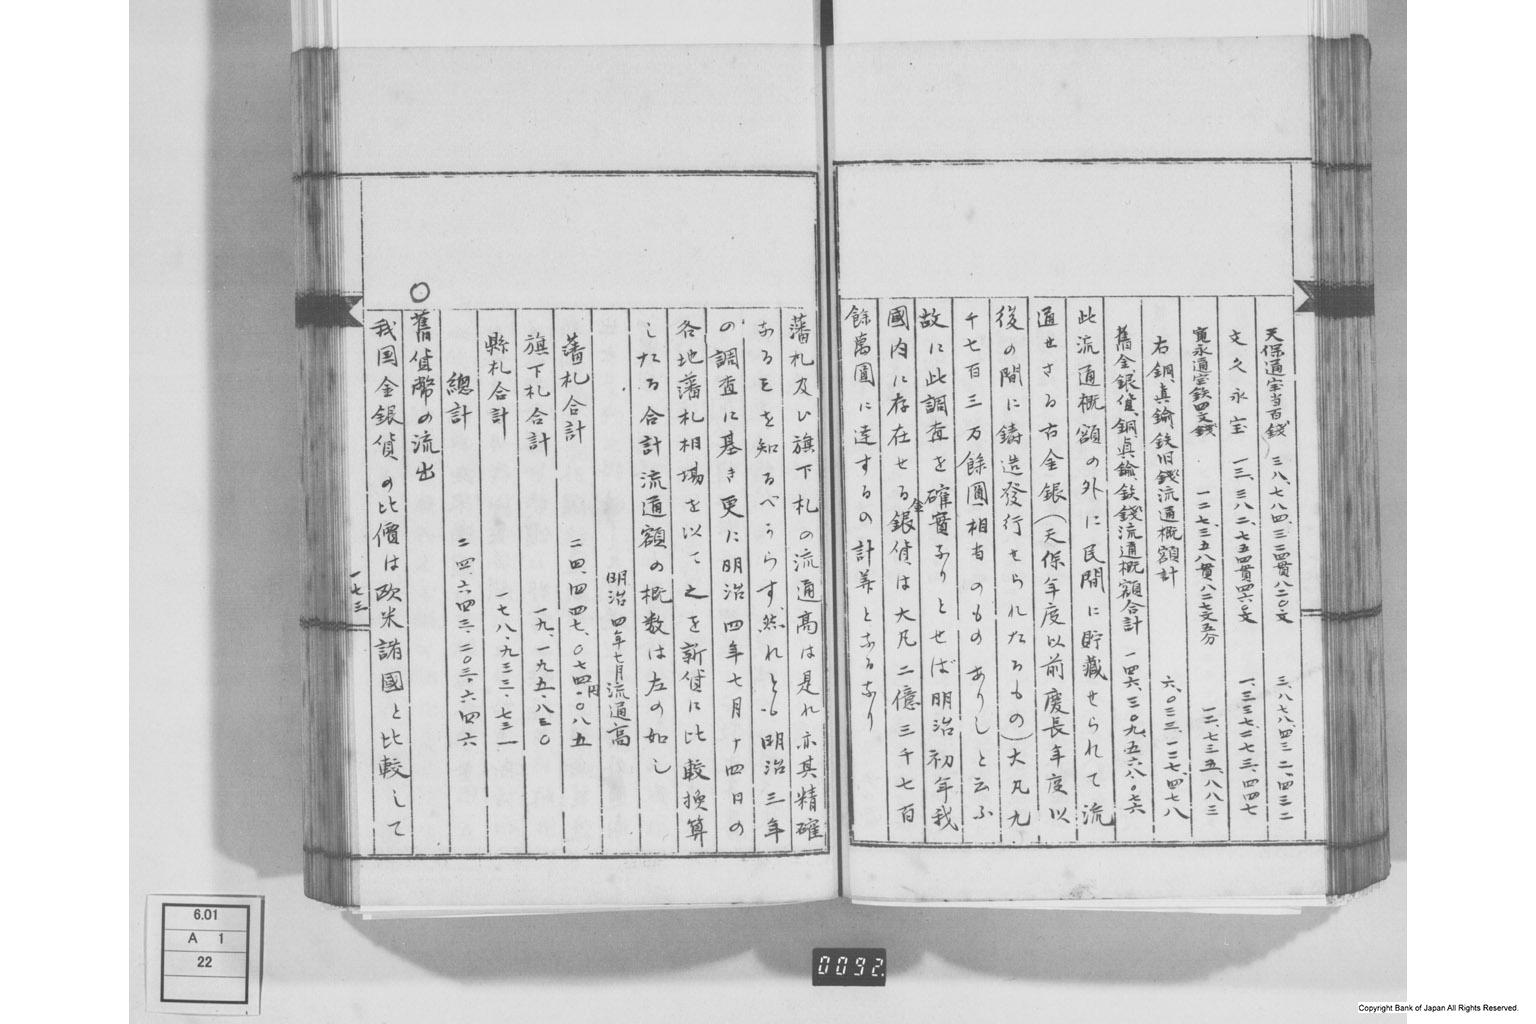 天保通宝当百銭 三八、七八四、三二四貫八二〇文 三、八七八、四三二、四三二
文久永宝 一三、三八二、七五四貫四六〇文 一、三三七、二七三、四四七
寛永通宝鉄四文銭 一二七、三五八貫八二七文五分 一二、七三五、八八三
右銅、真鍮、鉄旧銭流通概額計 六、〇三三、一二七、四七八
舊金、銀貨、銅、眞鍮、鉄銭流通概額合計 一四六、三〇九、五六八、〇七六
此流通概額の外に民間に貯蔵せられて流
通せさる古金銀(天保年度以前慶長年度以
後の間に鋳造發行せられたるもの)大凡九
千七百三万餘圓相当のものありしと云ふ
故に此調査を確實なりとせば明治初年我
國内に存在せる金銀貨は大凡二億三千七百
餘萬圓に達するの計算となるなり
藩札及ひ旗下札の流通高は是れ亦其精確
なるを知るべからす然れとも明治三年
の調査に基き更に明治四年七月十四日の
各地藩札相場を以て之を新貨に比較換算
したる合計流通額の概数は左の如し
明治四年七月流通高
藩札合計 二四、四四七、〇七四円、〇八五
旗下札合計 一九、一九五、八三〇
縣札合計 一七八、九三三、七三一
總計 二四、六四三、二〇三、六四六
○舊貨幣の流出
我国金銀貨の比價は欧米諸國と比較して
一七三
6.01
A 1
22
0092
Copyright Bank of Japan All Rights Reserved.